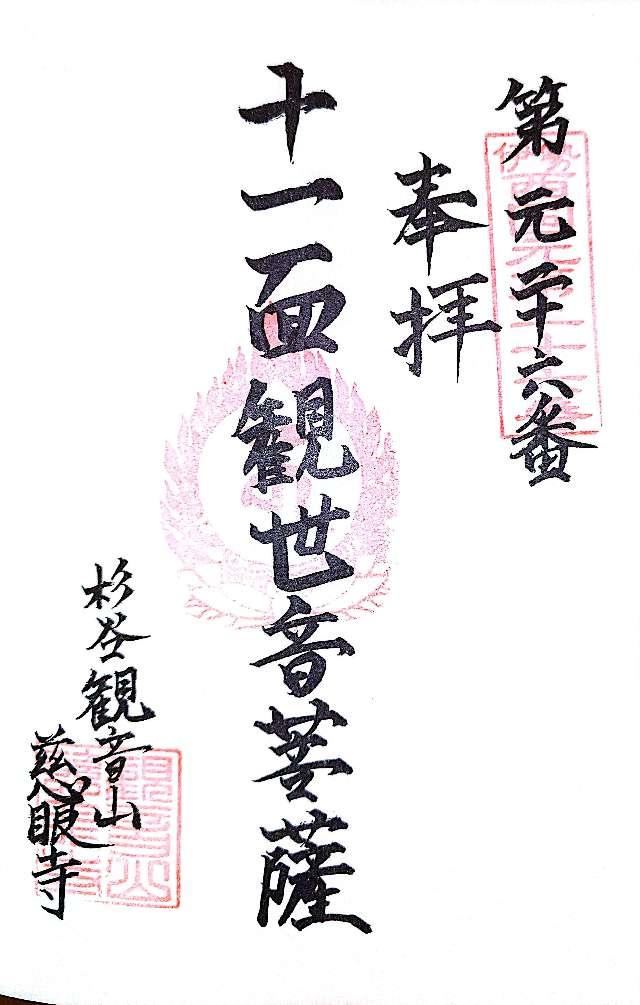 第元二十六番
奉拝
十一面観世音菩薩
杉谷観音山
慈眼寺